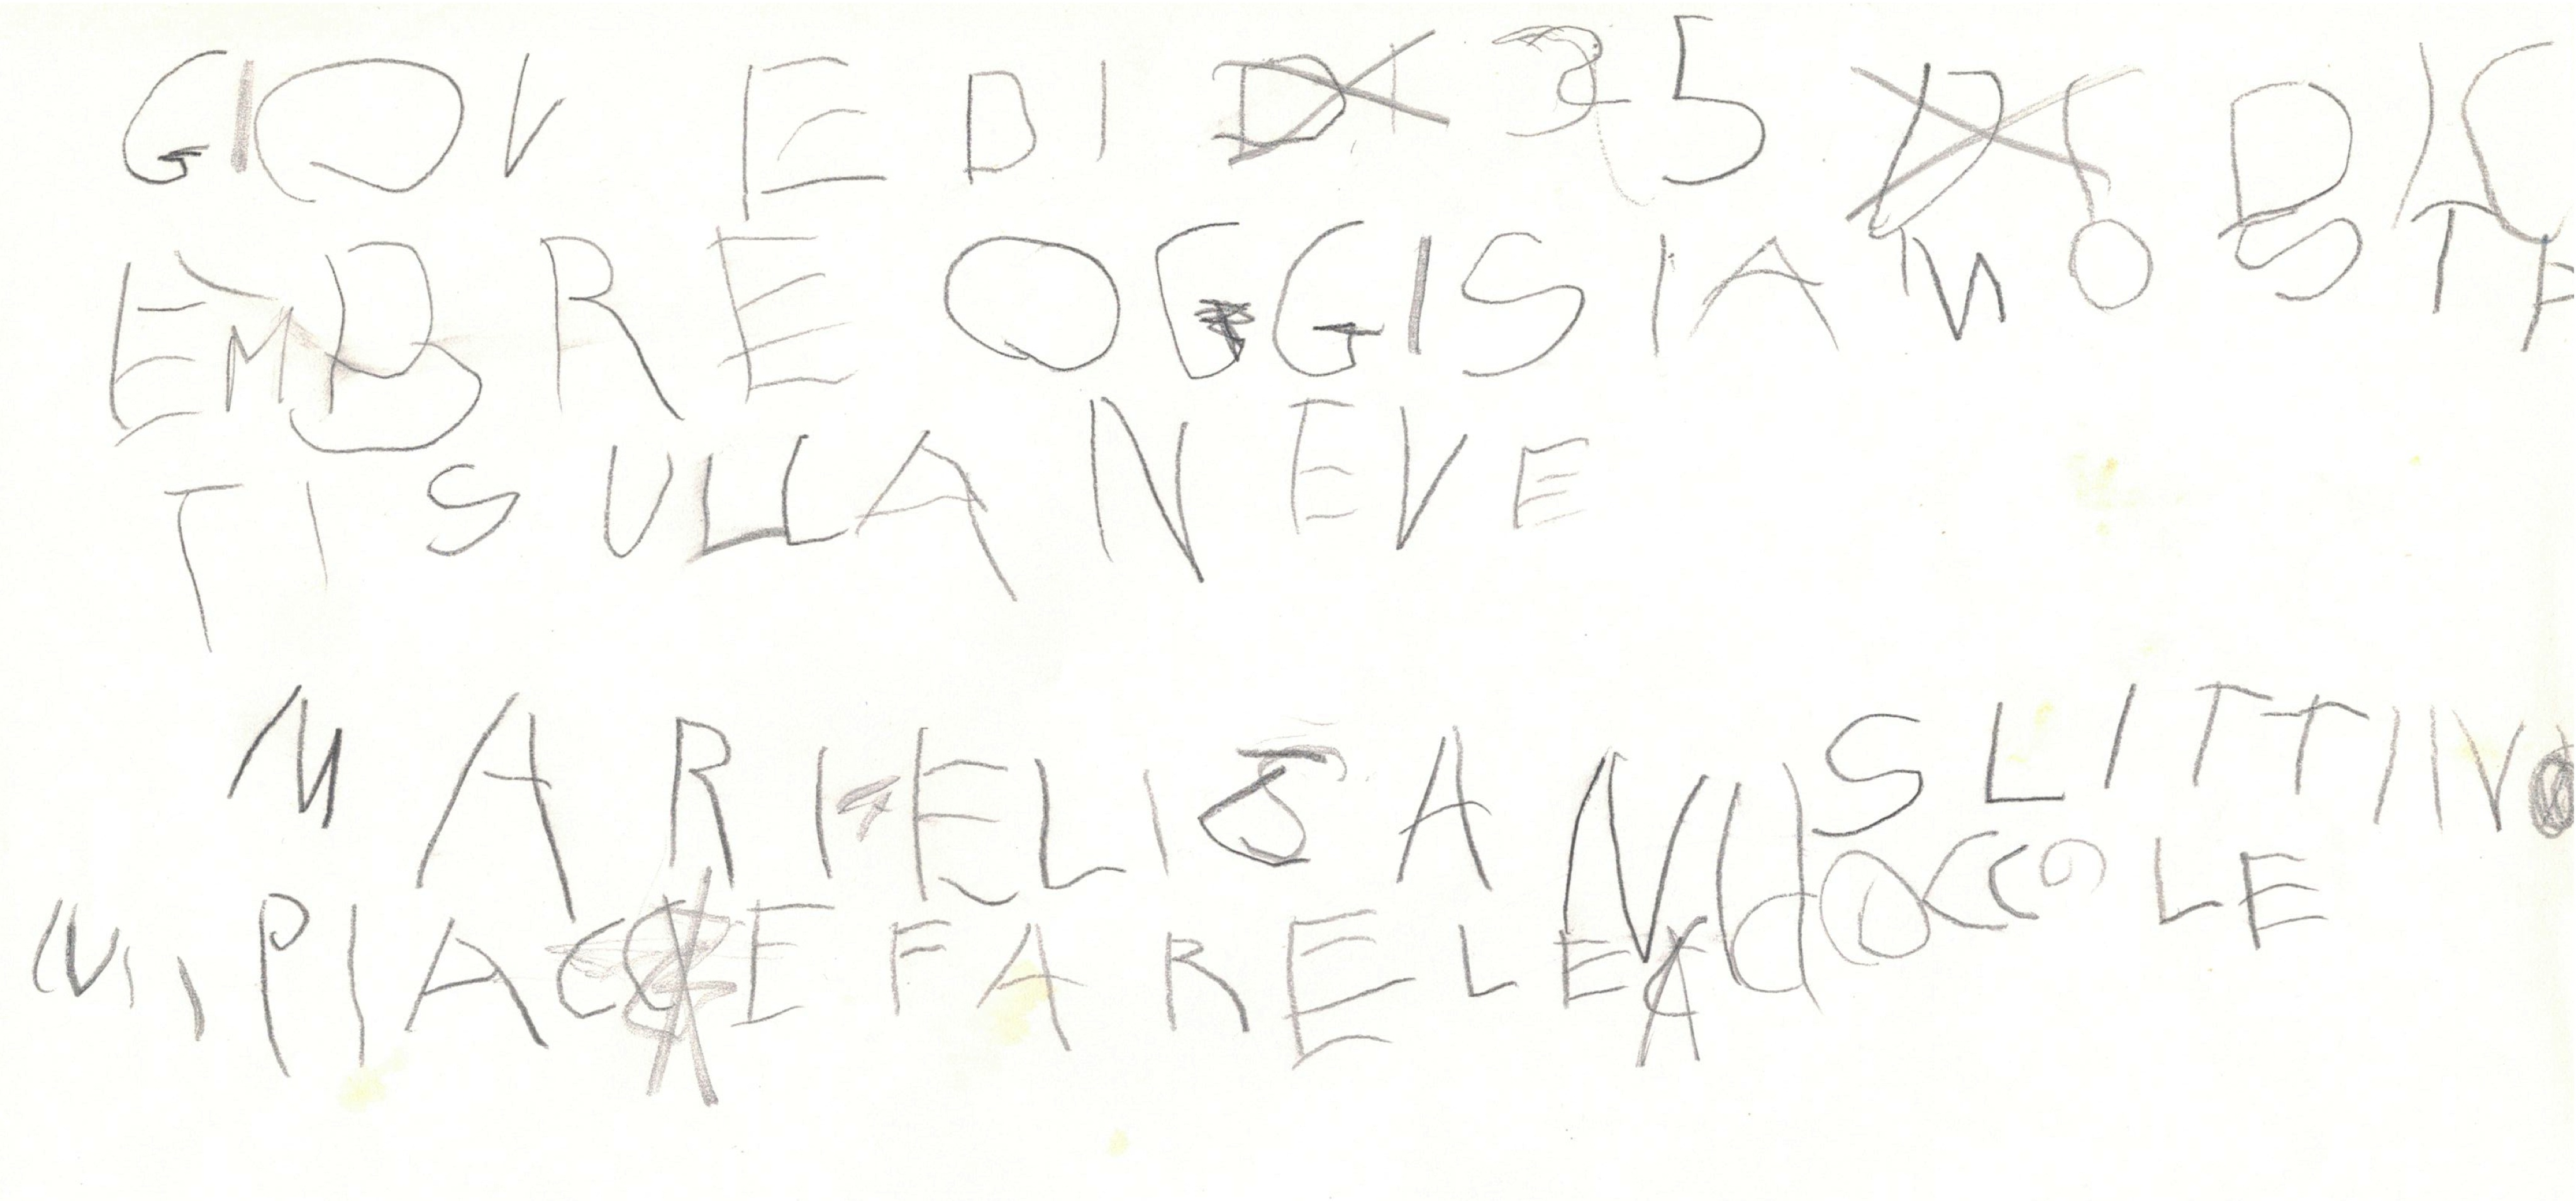 GIOVEDI 5 DIC
EMBRE OGGI SIAMO STA
TI SULLA NEVE
MARIELISA SLITTINO
MI PIACE FARE LE